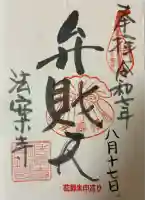 奉拝 令和七年
八月十七日
弁財天
法案寺